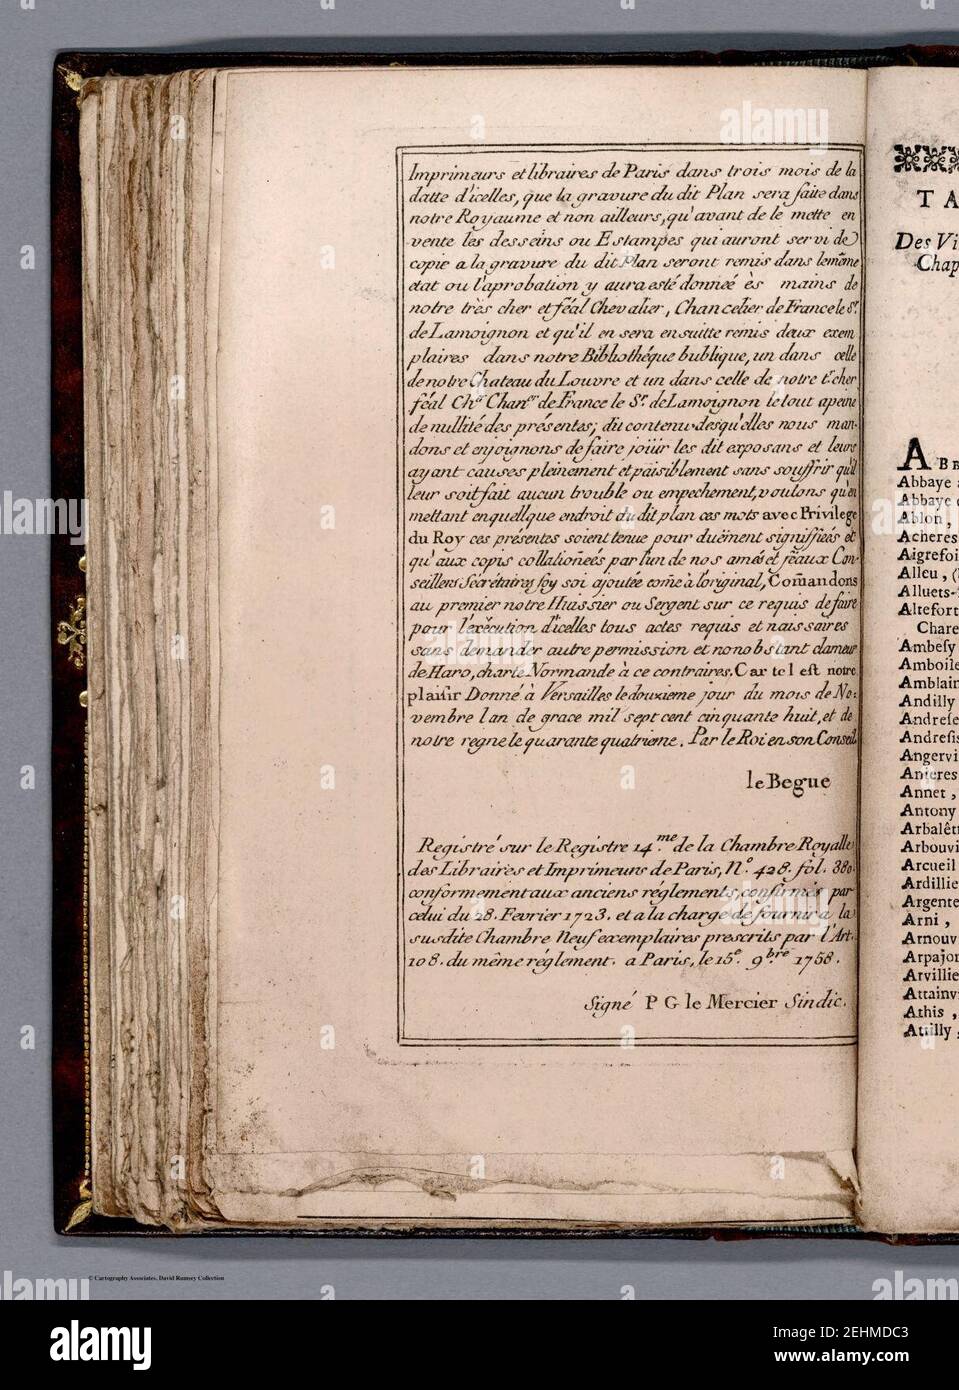 Imprimeurs et libraires de Paris dans trois mois de la
datte d'icelles, que la gravure du dit Plan sera faite dans
notre Royaume et non ailleurs, qu'avant de le mettre en
vente les desseins ou Estampes qui auront servi de
copie a la gravure du dit Plan seront remis dans le même
état ou l'aprobation y aura esté donneé ès mains de
notre très cher et féal Chevalier, Chancelier de France le Sr.
de Lamoignon et qu'il en sera ensuitte remis deux exem
plaires dans notre Bibliothéque bublique, un dans celle
de notre Chateau du Louvre et un dans celle de notre t. cher
féal Chr. Chaner. de France le Sr. de Lamoignon le tout apeine
de nullité des présentes; du contenu desqu'elles nous man-
dons et enjoignons de faire joüir les dit exposans et leurs
ayant causes pleinement et paisiblement sans souffrir qu'il
leur soit fait aucun trouble ou empechement, voulons qu'en
mettant en quellque endroit du dit plan ces mots avec Privilege
du Roy ces présentes soient tenue pour duëment signiffiéés et
qu'aux copis collationeés par l'un de nos améś et féaux Con-
seillers Sécrétaires foy soi ajoutée come à l'original, Comandons
au premier notre Huissier ou Sergent sur ce requis de faire
pour l'exécution d'icelles tous actes requis et naissaires
sans demander autre permission et nonobstant clameur
de Haro, charte Normande à ce contraires. Car tel est notre
plaisir Donné à Versailles le douzieme jour du mois de No:
vembre l an de grace mil sept cent cinquante huit, et de
notre regne le quarante quatrieme. Par le Roi en son Conseil
le Begue
Registré sur le Registre 14.me de la Chambre Royalle
des Libraires et Imprimeurs de Paris, No. 428. fol. 380.
conformement aux anciens réglements, confirmés par
celui du 28. Fevrier 1723. et a la charge de fournir a la
susdite Chambre Neuf exemplaires prescrits par l'Art.
108. du même réglement. a Paris, le 15e. 9.bre 1758.
Signé P G le Mercier Sindic.
TA
Des Vi
Chap
ABB
Abbaye
Abbaye
Ablon,
Acheres
Aigrefoi
Alleu, (
Alluets-
Altefort
Chare
Ambesy
Amboile
Amblain
Andilly
Andrese
Andresis
Angervi
Anieres
Annet,
Antony
Arbalêt
Arbouvi
Arcueil
Ardillie
Argente
Arni,
Arnouv
Arpajon
Arvillie
Attainvi
Athis,
Attilly,
© Cartography Associates, David Rumsey Collection
alamy
Image ID: 2EHMDC3
www.alamy.com